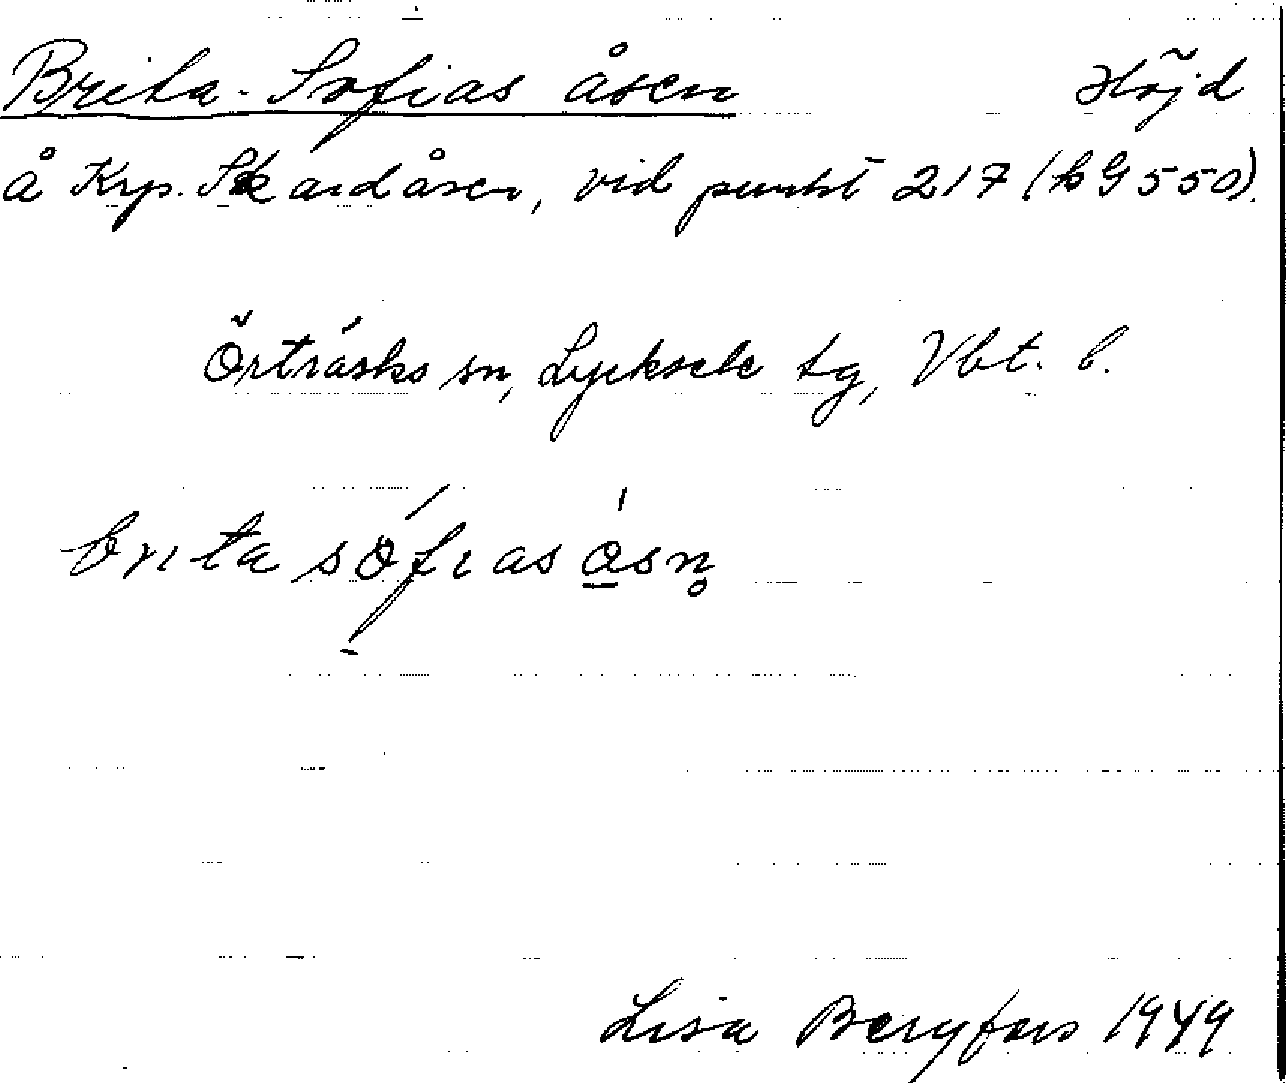 Brita-Sofias åsen Höjd
å Krp. Skardåsen, vid punkt 217 (bG 550).
Örträsks sn, Lycksele tg, Vbt. l.
brita sófias ásn̥
Lisa Bergfors 1949